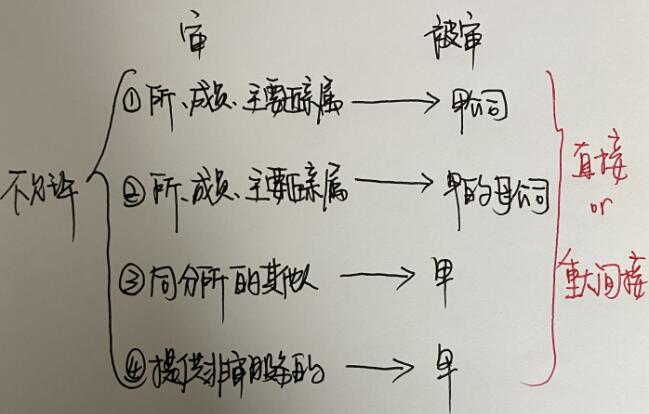 审 被审
不允许
①所、成员、主要近亲属 → 甲公司
②所、成员、主要近亲属 → 甲的母公司
③同分所的其他人 → 甲
④提供非审服务的 → 甲
直接
or
重大间接